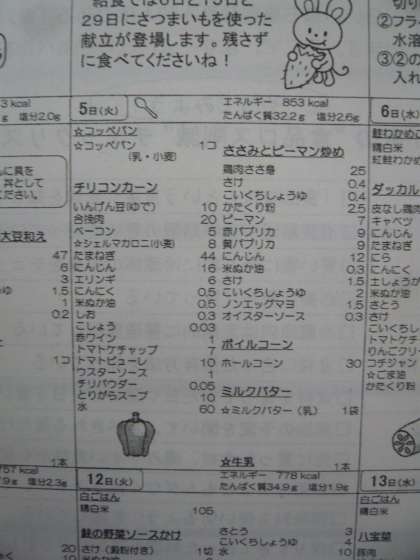 給食では6日と15日と
29日にさつまいもを使った
献立が登場します。残さず
に食べてくださいね！
切り
②フラ
水溶
③②の
入れ
3 kcal
塩分2.0g
5日(火)
エネルギー 853 kcal
たんぱく質32.2g 塩分2.6g
6日(水)
☆コッペパン
☆コッペパン 1コ
(乳・小麦)
チリコンカーン
いんげん豆(ゆで) 10
合挽肉 20
ベーコン 5
☆シェルマカロニ(小麦) 8
たまねぎ 44
にんじん 16
エリンギ 6
にんにく 0.5
米ぬか油 0.5
しお 0.3
こしょう 0.03
赤ワイン 1
トマトケチャップ 7
トマトピューレ 10
ウスターソース 1
チリパウダー 0.05
とりがらスープ 10
水 60
ささみとピーマン炒め
鶏肉ささ身 25
さけ 0.4
こいくちしょうゆ 0.4
かたくり粉 2.5
ピーマン 7
赤パプリカ 9
黄パプリカ 9
にんじん 12
米ぬか油 0.3
こいくちしょうゆ 2
ノンエッグマヨ 1.5
オイスターソース 0.3
ボイルコーン
ホールコーン 30
ミルクバター
☆ミルクバター（乳） 1袋
☆牛乳
1本
鮭わかめご
精白米
紅鮭わかめ
ダッカル
皮なし鶏
キャベツ
にんじん
たまねぎ
にら
にんにく
土しょうが
米ぬか油
さとう
さけ
こいくち
トマトケチ
りんごクリー
コチジャン
☆ごま油
かたくり粉
んに具を
丼として
ください。
大豆和え
47
6
3
ゆ 1.5
1
0.2
1コ
1本
757 kcal
塩分2.3g
12日(火)
エネルギー 778 kcal
たんぱく質34.9g 塩分1.9g
13日(水)
白ごはん
精白米 105
鮭の野菜ソースかけ
さけ（澱粉付き） 1切
米ぬか油
さとう 3
こいくちしょうゆ 4
水 10
白ごはん
精白米
八宝菜
豚肉
20
10